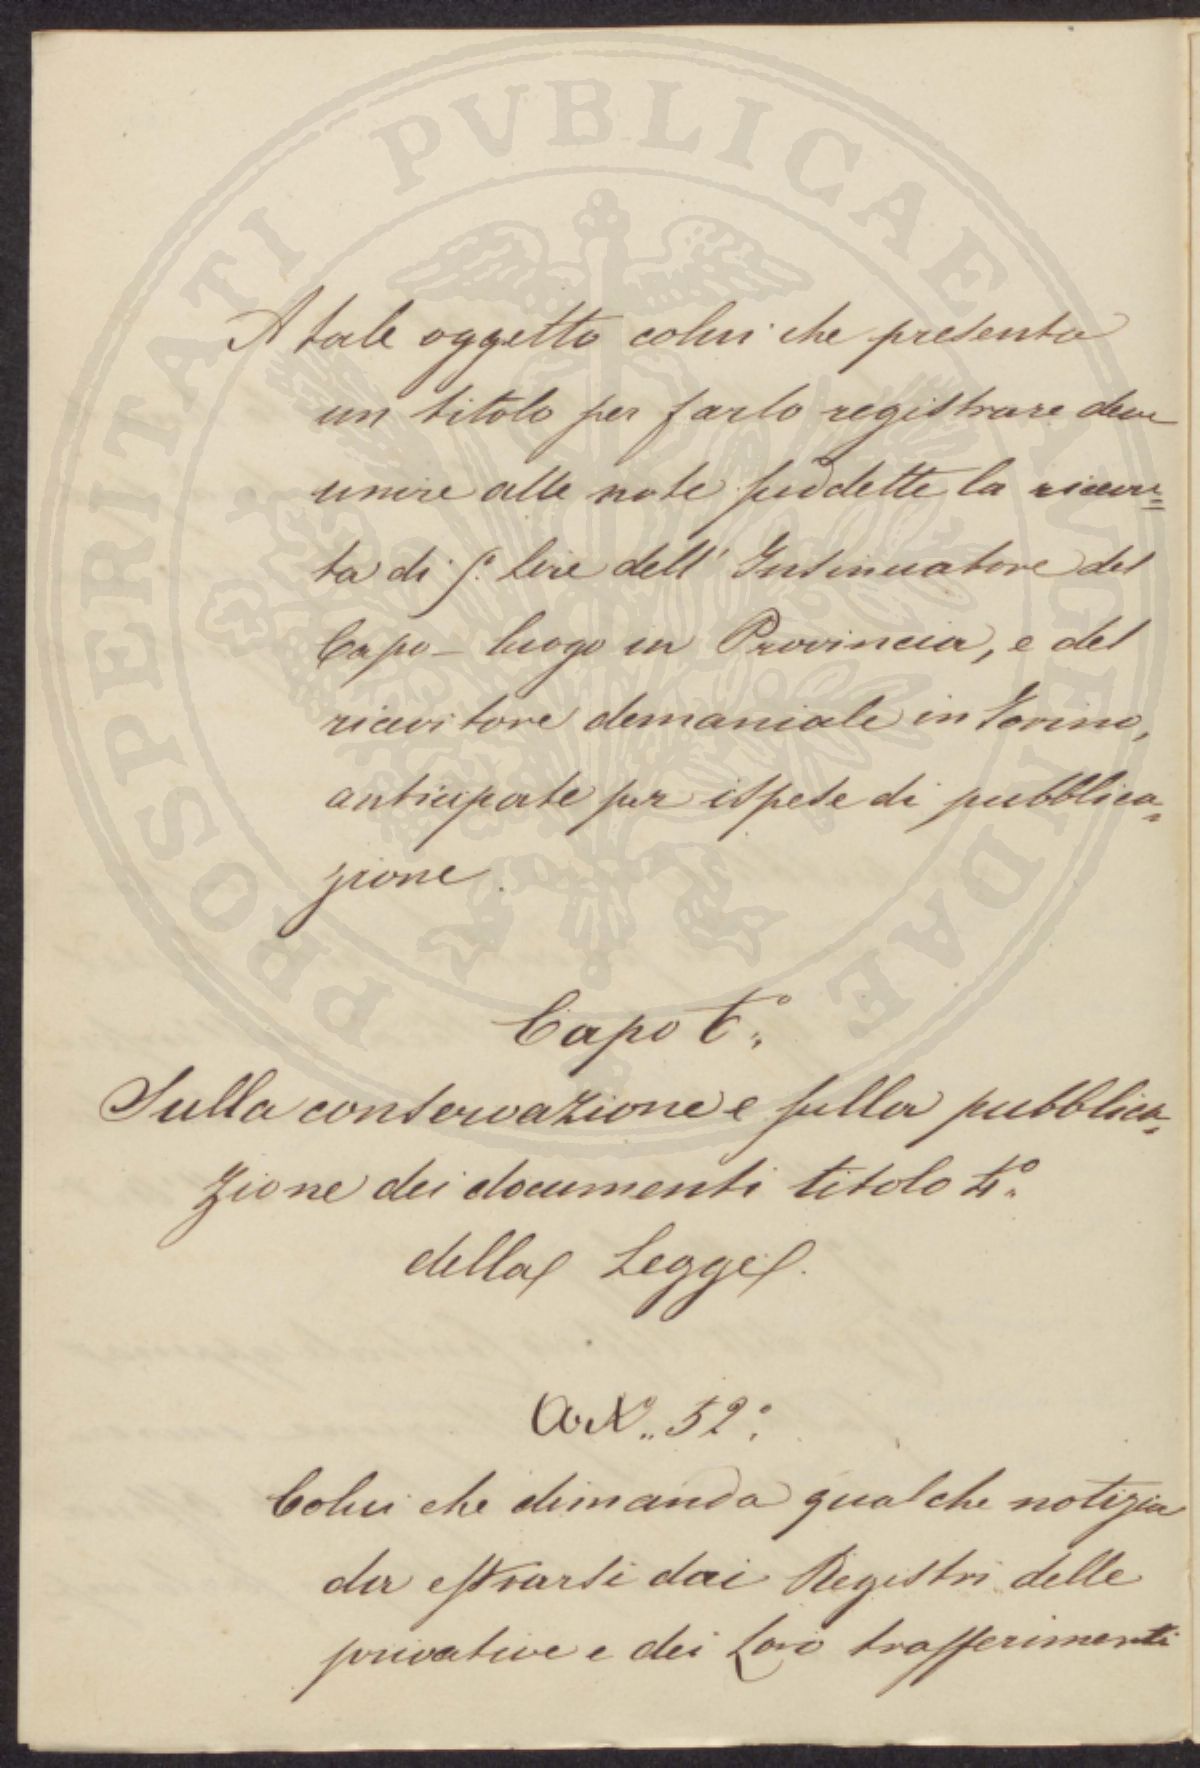 PROSPERITATI PVBLICAE AVGENDAE
A tale oggetto colui che presenta
un titolo per farlo registrare deve
unire alle note suddette la ricevu=
ta di 5. Lire dell' Insinuatore del
Capo- luogo in Provincia, e del
ricevitore demaniale in Torino,
anticipate per ispese di pubblica=
zione.
Capo
Sulla conservazione e sulla pubblica=
zione dei documenti titolo
della Legge.
52°
Colui che dimanda qualche notizia
da estrarsi dai Registri delle
privative e dei Loro trasferimenti